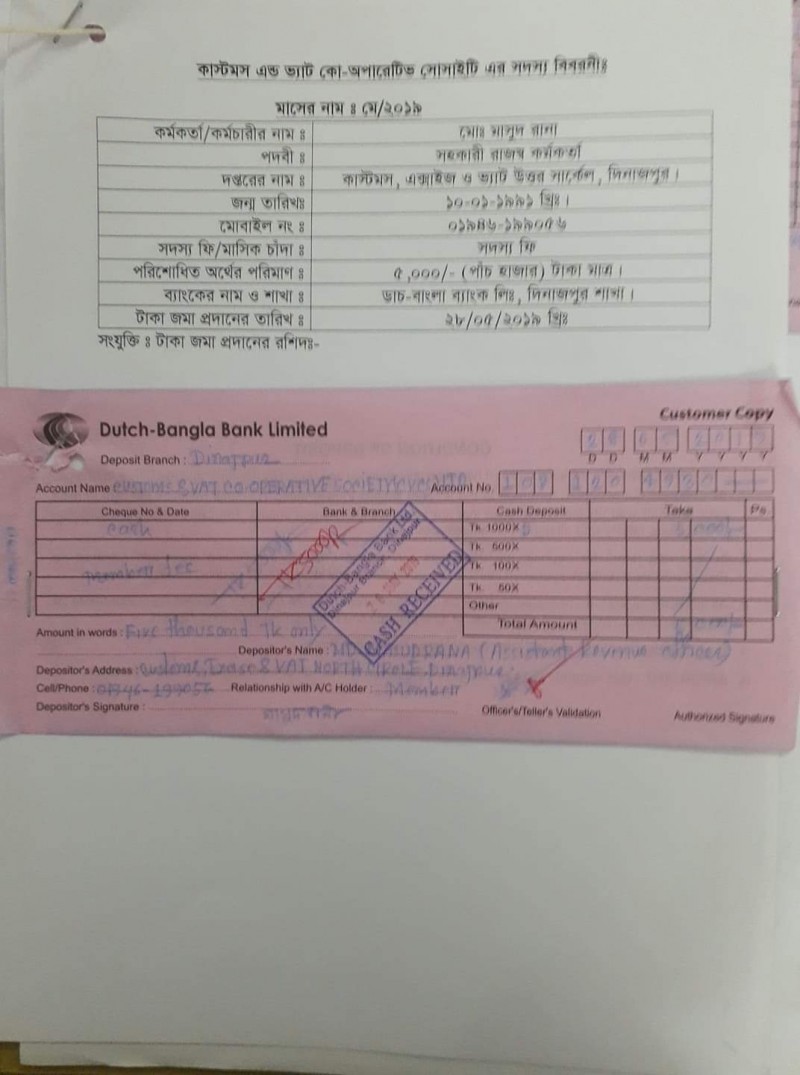 কাস্টমস এন্ড ভ্যাট কো-অপারেটিভ সোসাইটি এর সদস্য বিবরনীঃ
মাসের নাম ঃ মে/২০১৯
কর্মকর্তা/কর্মচারীর নাম ঃ মোঃ মাসুদ রানা
পদবী ঃ সহকারী রাজস্ব কর্মকর্তা
দপ্তরের নাম ঃ কাস্টমস, এক্সাইজ ও ভ্যাট উত্তর সার্কেল, দিনাজপুর।
জন্ম তারিখঃ ১০-০১-১৯৯১ খ্রিঃ।
মোবাইল নং ঃ
সদস্য ফি/মাসিক চাঁদা ঃ সদস্য ফি
পরিশোধিত অর্থের পরিমাণ ঃ ৫,০০০/- (পাঁচ হাজার) টাকা মাত্র।
ব্যাংকের নাম ও শাখা ঃ ডাচ-বাংলা ব্যাংক লিঃ, দিনাজপুর শাখা।
টাকা জমা প্রদানের তারিখ ঃ ২৮/০৫/২০১৯ খ্রিঃ
সংযুক্তি ঃ টাকা জমা প্রদানের রশিদঃ-
Customer Copy
Dutch-Bangla Bank Limited
Deposit Branch : Dinajpur
D D M M Y Y Y Y
Account Name CUSTOMS & VAT CO-OPERATIVE SOCIETY Account No.
Cheque No & Date Bank & Branch Cash Deposit Taka Ps.
Cash Tk. 1000X 5
Tk. 500X
Member fee Tk. 100X
Tk. 50X
Other
Total Amount
Dutch-Bangla Bank Ltd
Dinajpur Branch, Dinajpur
CASH RECEIVED
Amount in words : Five thousand Tk only
Depositor's Name : MD. MASUD RANA (Assistant Revenue officer)
Depositor's Address : Customs, Excise & VAT NORTH CIRCLE, Dinajpur.
Cell/Phone : Relationship with A/C Holder : Member
Depositor's Signature : মাসুদ রানা
Officer's/Teller's Validation Authorized Signature